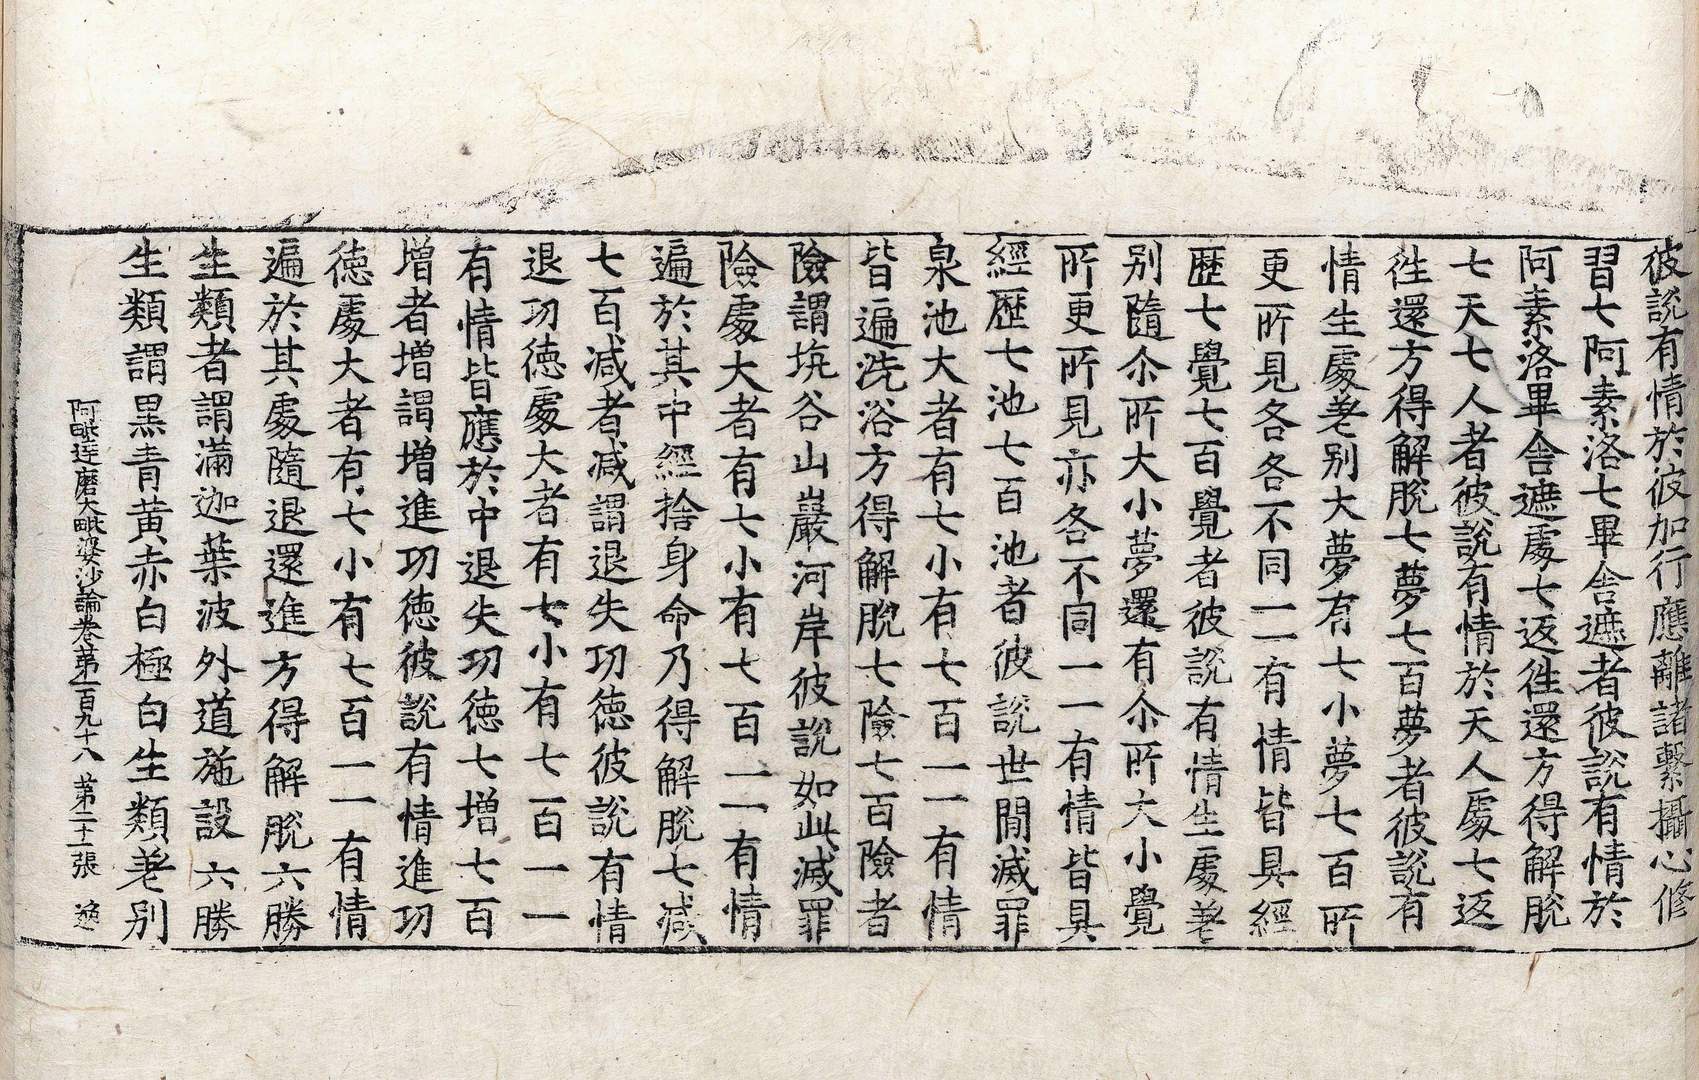 彼說有情於彼加行應離諸繫攝心修
習七阿素洛七畢舍遮者彼說有情於
阿素洛畢舍遮處七返徃還方得解脫
七天七人者彼說有情於天人處七返
徃還方得解脫七夢七百夢者彼說有
情生處差別大夢有七小夢七百所
更所見各各不同一一有情皆具經
歷七覺七百覺者彼說有情生處差
別隨尒所大小夢還有尒所大小覺
所更所見亦各不同一一有情皆具
經歷七池七百池者彼說世間滅罪
泉池大者有七小有七百一一有情
皆遍洗浴方得解脫七險七百險者
險謂坑谷山巖河岸彼說如此滅罪
險處大者有七小有七百一一有情
遍於其中經捨身命乃得解脫七减
七百减者减謂退失功德彼說有情
退功徳處大者有七小有七百一一
有情皆應於中退失功徳七增七百
增者增謂增進功徳彼說有情進功
德處大者有七小有七百一一有情
遍於其處隨退還進方得解脫六勝
生類者謂滿迦葉波外道施設六勝
生類謂黑青黃赤白極白生類差別
阿毗達磨大毗婆沙論卷第一百九十八 第二十一張 逸